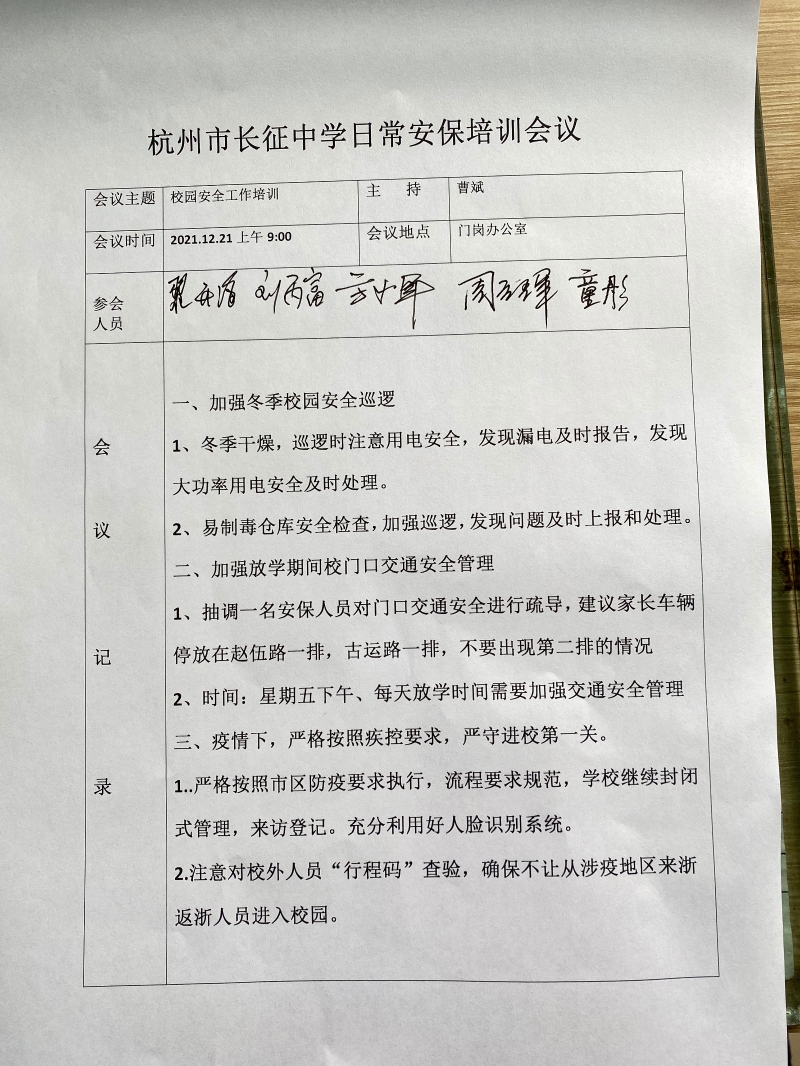 杭州市长征中学日常安保培训会议
会议主题 校园安全工作培训 主 持 曹斌
会议时间 2021.12.21 上午 9:00 会议地点 门岗办公室
参会
人员
刘丙富 童彤
会议记录
一、加强冬季校园安全巡逻
1、冬季干燥，巡逻时注意用电安全，发现漏电及时报告，发现
大功率用电安全及时处理。
2、易制毒仓库安全检查，加强巡逻，发现问题及时上报和处理。
二、加强放学期间校门口交通安全管理
1、抽调一名安保人员对门口交通安全进行疏导，建议家长车辆
停放在赵伍路一排，古运路一排，不要出现第二排的情况
2、时间：星期五下午、每天放学时间需要加强交通安全管理
三、疫情下，严格按照疾控要求，严守进校第一关。
1..严格按照市区防疫要求执行，流程要求规范，学校继续封闭
式管理，来访登记。充分利用好人脸识别系统。
2.注意对校外人员“行程码”查验，确保不让从涉疫地区来浙
返浙人员进入校园。